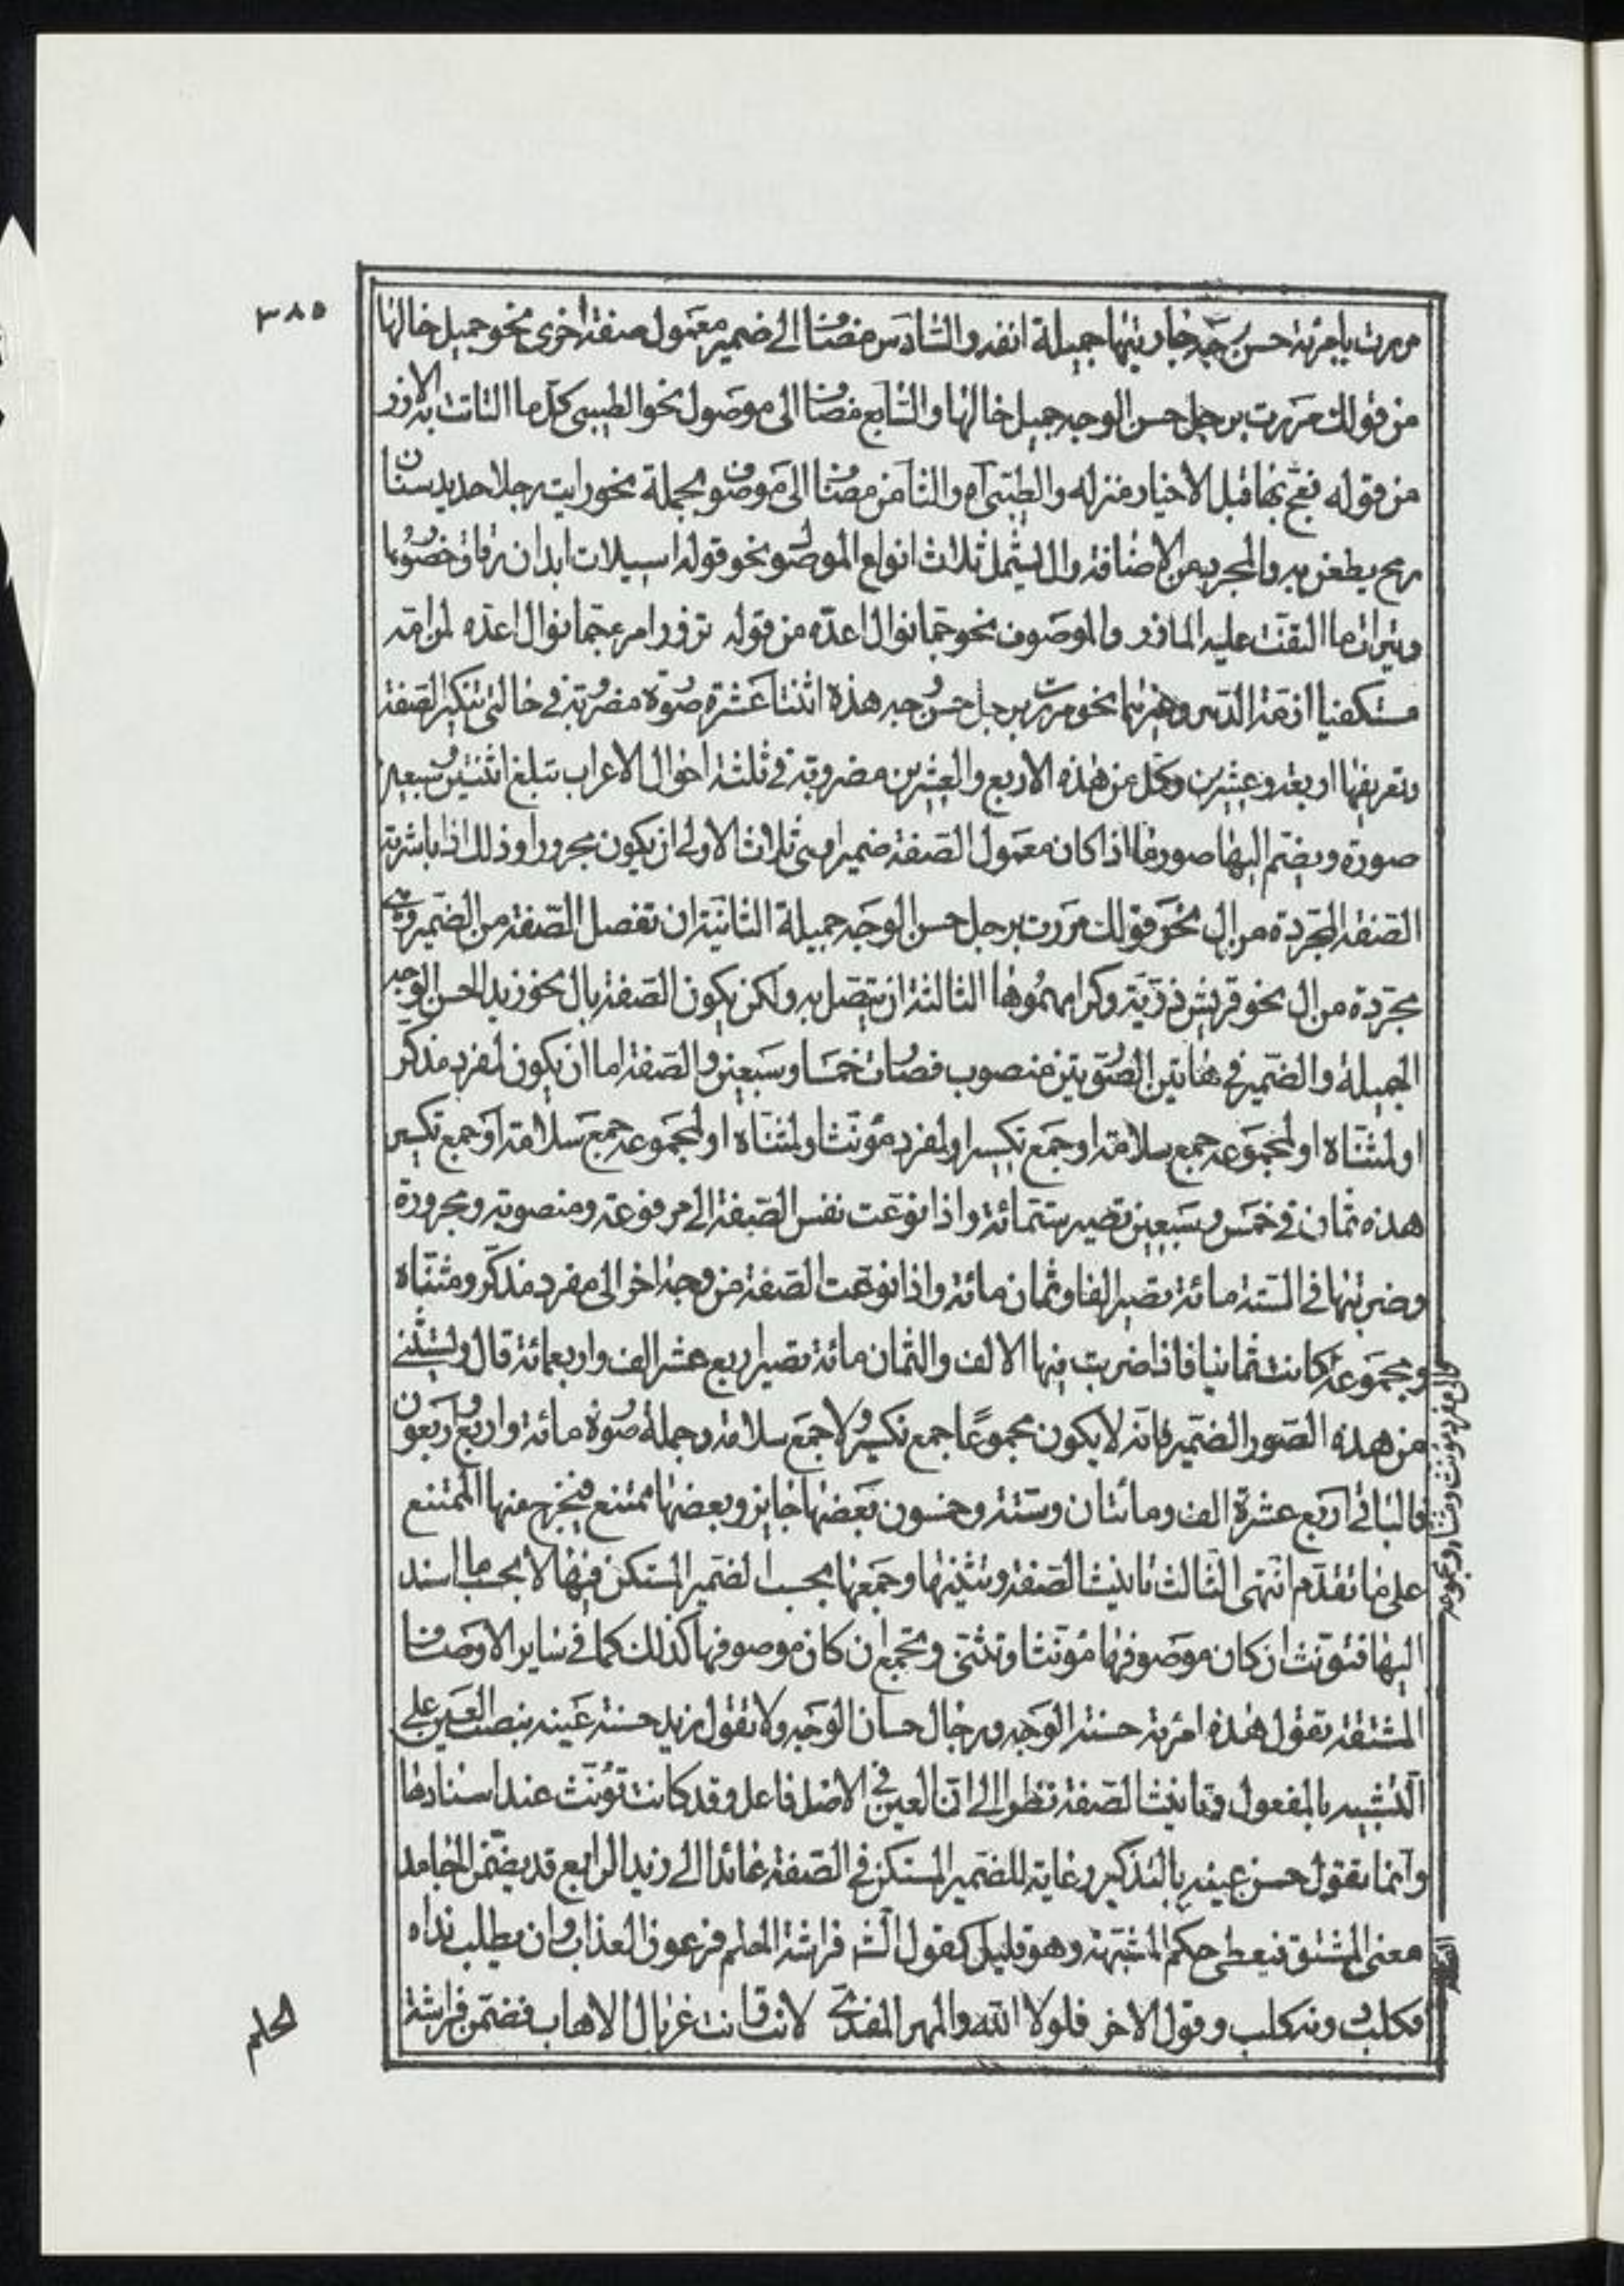 ٣٨٥
مررت بامرئة حسن وجه جاريتها جميلة انفه والسادس مضافا الى ضمير معمول صفة اخرى نحو جميل خالها
من قولك مررت برجل حسن الوجه جميل خالها والسابع مضافا الى موصول نحو الطيبى كل ما التاثت به الازر
من قوله فعج بها قبل الاخيار منزلة والطيبى اه والثامن مضافا الى موصوف بجملة نحو رايت رجلا حديد سنان
رمح يطعن به والمجرد من الاضافة وال يشمل ثلاث انواع الموصول نحو قوله اسيلات ابدان رقاق خصورها
وثيرات ما التفت عليه المازر والموصوف نحو جما نوال اعده من قوله تزور امرء جما نوال اعده لمن امه
مستكفيا ازمة الدهر وغيرهما نحو مررت برجل حسن وجه هذه اثنتا عشرة صورة مضروبة في حالتى تنكير الصفة
وتعريفها اربعة وعشرين وكل من هذه الاربع والعشرين مضروبة في ثلثة احوال الاعراب تبلغ اثنتين وسبعين
صورة ويضم اليها صور ما اذا كان معمول الصفة ضميرا وهى ثلاث الاولى ان يكون مجرورا وذلك اذا باشرته
الصفة المجردة من ال نحو قولك مررت برجل حسن الوجه جميلة الثانية ان تفصل الصفة من الضمير وهى
مجردة من ال نحو قريش ذرية وكرامهموها الثالثة ان يتصل به ولكن يكون الصفة بال نحو زيد الحسن الوجه
الجميلة والضمير في هاتين الصورتين منصوب فصارت خمسا وسبعين والصفة اما ان يكون لمفرد مذكر
اولمثناه اولمجموعه جمع سلامة او جمع تكسير اولمفرد مؤنث اولمثناه اولمجموعه جمع سلامة او جمع تكسير
هذه ثمان في خمس وسبعين تصير ستمائة واذا نوعت نفس الصفة الى مرفوعة ومنصوبة ومجرورة
وضربتها في الستة مائة تصير الفا وثمان مائة واذا نوعت الصفة من وجه اخر الى مفرد مذكر ومثناه
ومجموعه كانت ثمانيا فاذا ضربت فيها الالف والثمان مائة تصير اربع عشر الف واربعمائة قال ويستثنى
من هذه الصور الضمير فانه لا يكون مجموعا جمع تكسير ولا جمع سلامة وجملة صوره مائة واربع واربعون
فالباقى اربع عشرة الف ومائتان وستة وخمسون بعضها جايز وبعضها ممتنع فيخرج منها الممتنع
على ما تقدم انتهى الثالث تانيث الصفة وتثنيتها وجمعها بحسب الضمير المستكن فيها لا بحسب ما اسند
اليها فتؤنث ان كان موصوفها مؤنثا وتثنى وتجمع ان كان موصوفها كذلك كما في ساير الاوصاف
المشتقة تقول هذه امرئة حسنة الوجه ورجال حسان الوجه ولا تقول زيد حسنة عينه بنصب العين على
التشبيه بالمفعول وتانيث الصفة نظرا الى ان العين في الاصل فاعل وقد كانت تؤنث عند اسنادها
وانما تقول حسن عينه بالتذكير رعاية للضمير المستكن في الصفة عائدا الى زيد الرابع قد يضمن الجامد
معنى المشتق فيعطى حكم المشبهة وهو قليل كقول الش فراشة الحلم فرعون العذاب وان يطلب نداه
فكلب دونه كلب وقول الاخر فلولا الله والمهر المفدى لابت وانت غربال الاهاب فضمن فراشة
الحلم